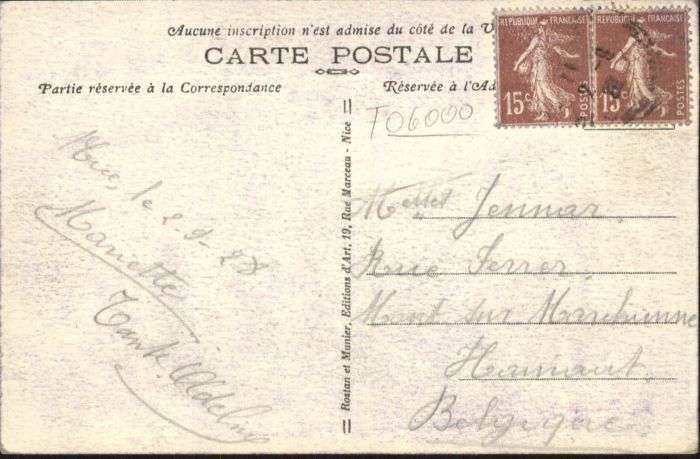 Aucune inscription n'est admise du côté de la V
CARTE POSTALE
Partie réservée à la Correspondance
Réservée à l'Ad
REPUBLIQUE FRANÇAISE
15c
POSTES
REPUBLIQUE FRANÇAISE
15c
POSTES
T06000
Nice, le 2-9-28
Mariette
Tante Adeline
Rostan et Munier, Editions d'Art, 19, Rue Marceau - Nice
Melles Jennar
Rue Ferrer
Mont sur Marchienne
Hainaut
Belgique